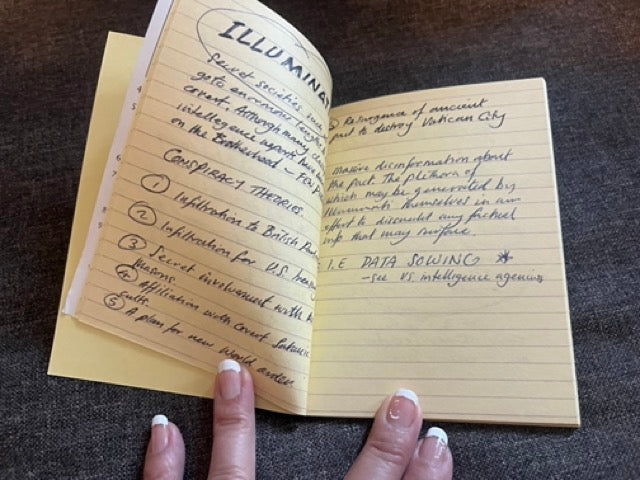 ILLUMINAT
Secret societies such
go to enormous lengths to
covert. Although many cla
intellegence reports have be
on the Brotherhood – Few p
CONSPIRACY THEORIES.
① Infiltration to British Par
② Infiltration for U.S. treasu
③ Secret involvement with the
Masons
④ Affiliation with Covert Satanic
cults.
⑤ A plan for new world order
Resurgence of ancient
pact to destroy Vatican City
Massive disinformation about
the pact. The plethora of
which may be generated by
Illuminati themselves in an
effort to discredit any factual
info that may surface.
I.E DATA SOWING *
– see US intelligence agencies